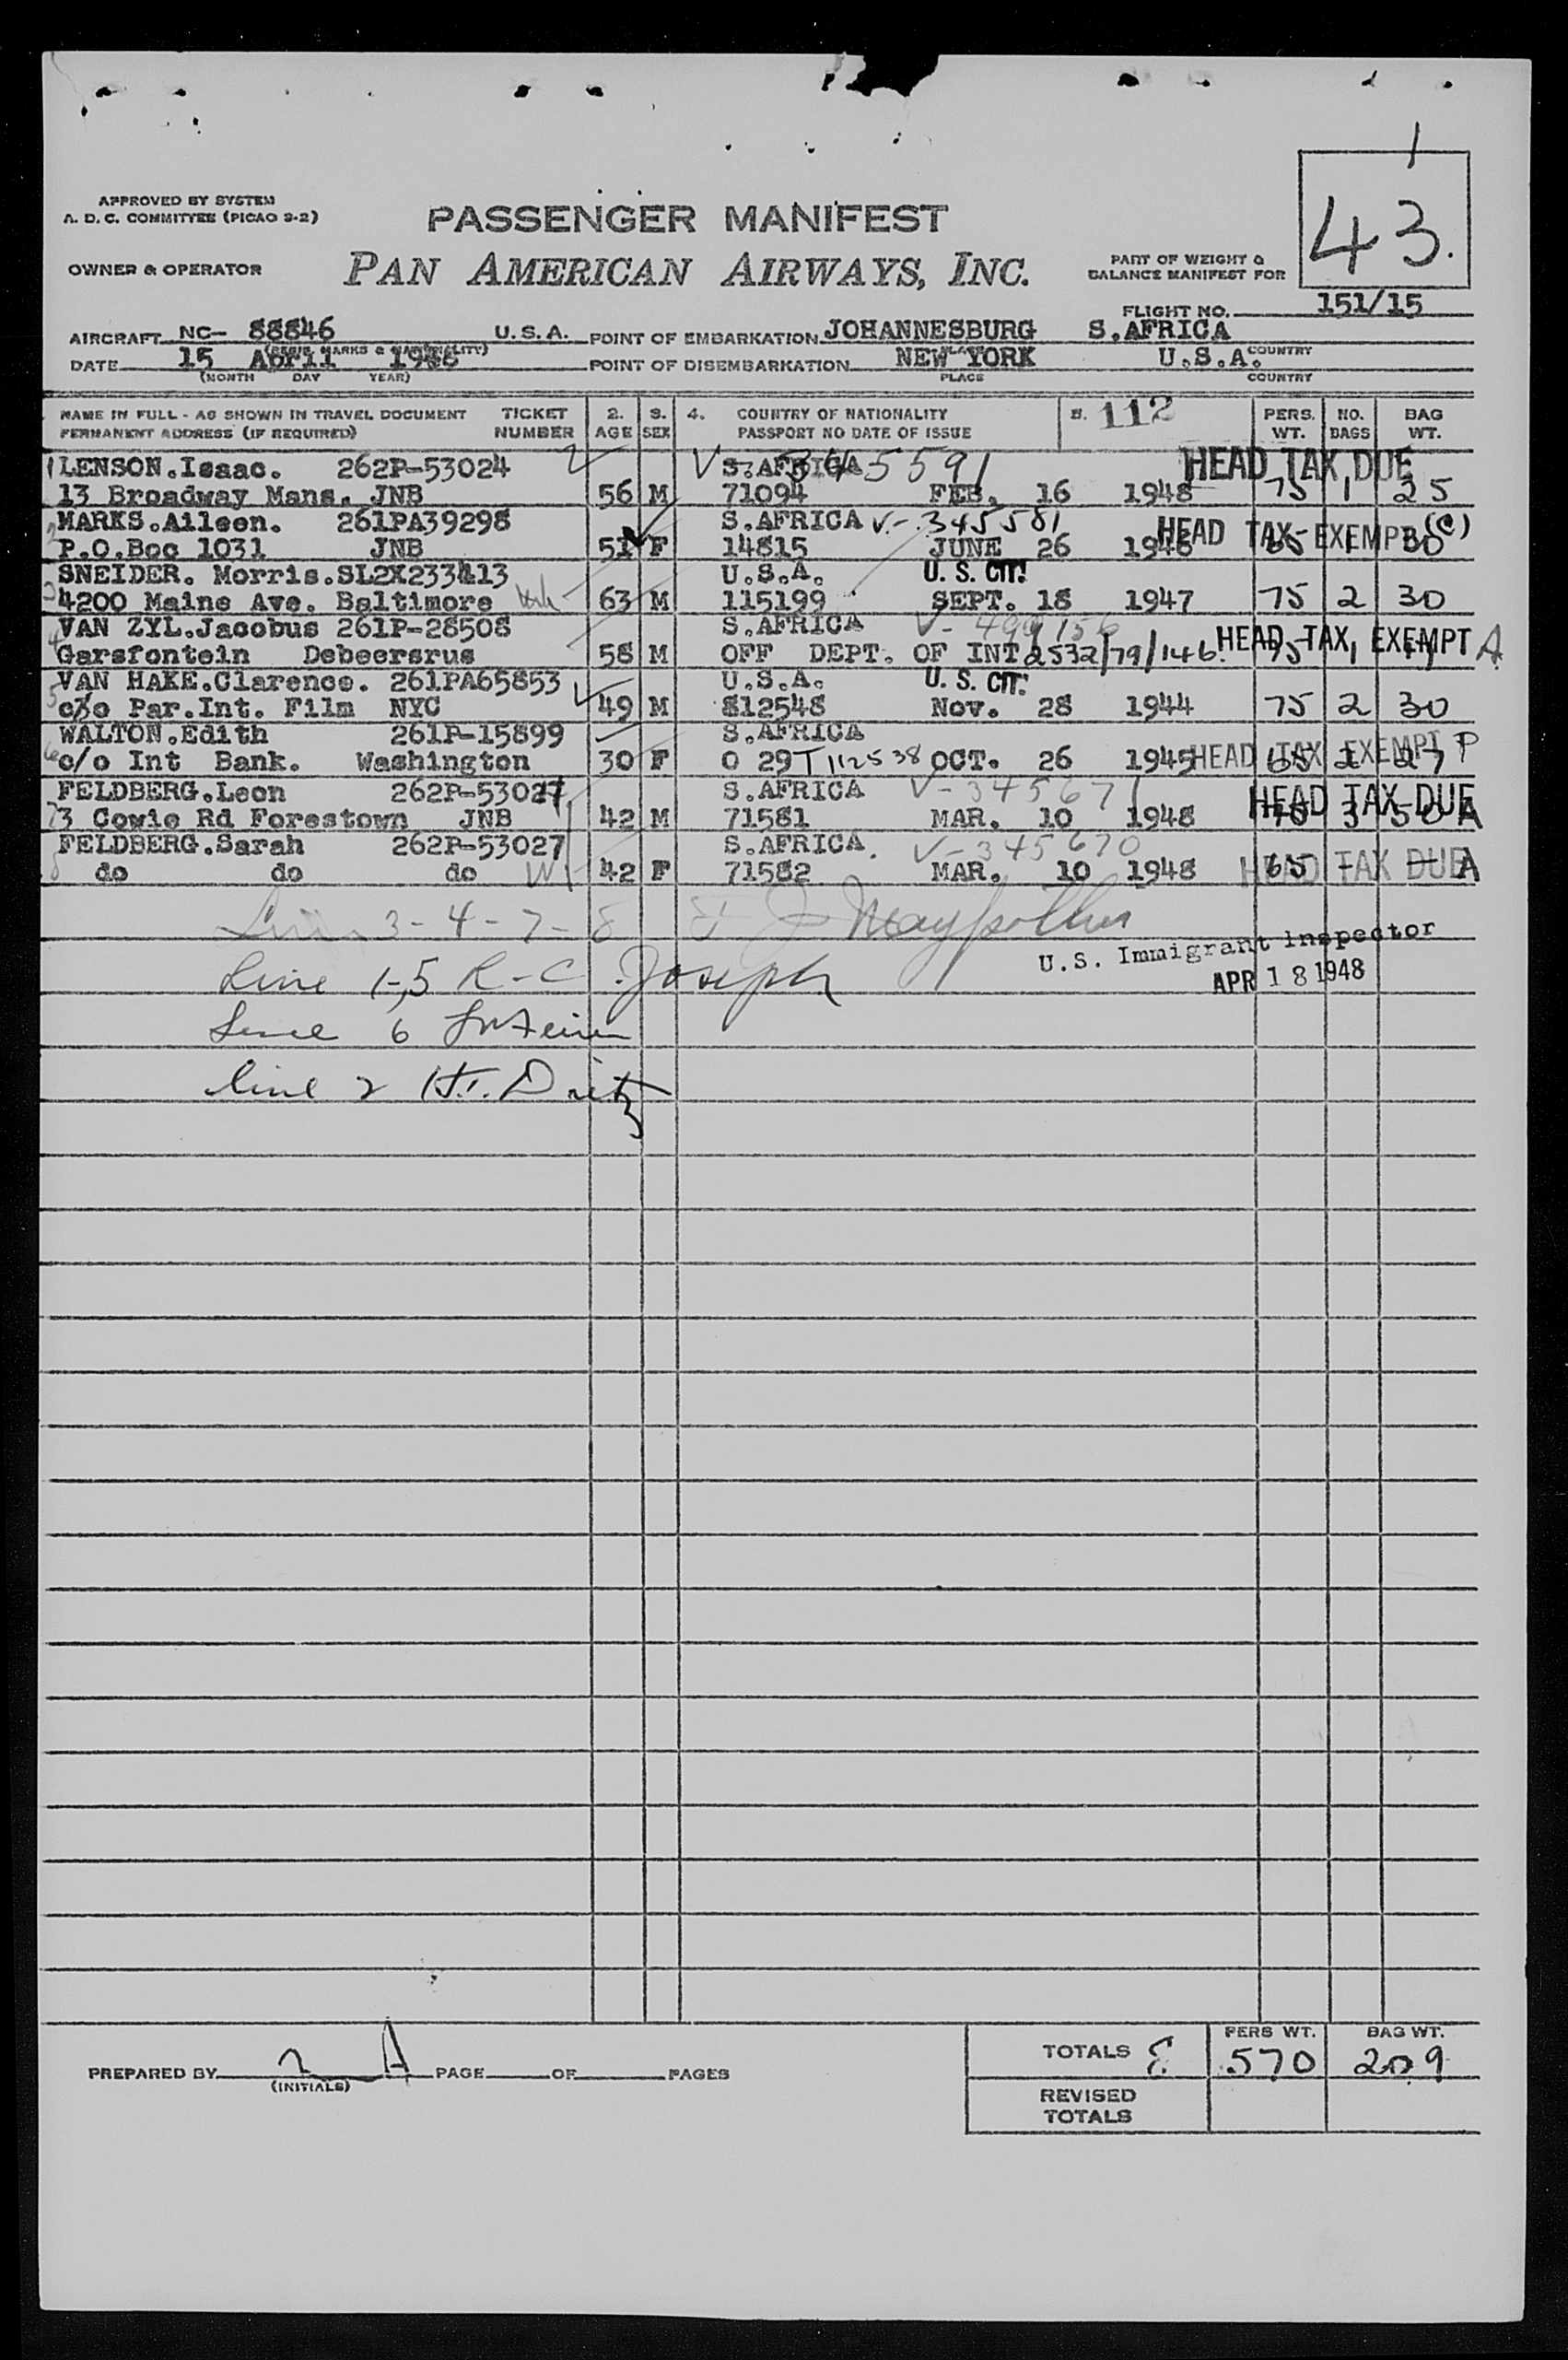 1
43.
APPROVED BY SYSTEM
A. D. C. COMMITTEE (PICAO 9-2)
PASSENGER MANIFEST
OWNER & OPERATOR
PAN AMERICAN AIRWAYS, INC.
PART OF WEIGHT &
BALANCE MANIFEST FOR
FLIGHT NO. 151/15
AIRCRAFT NC- 88846 U.S.A. POINT OF EMBARKATION JOHANNESBURG S.AFRICA
DATE 15 April 1948 POINT OF DISEMBARKATION NEW YORK U.S.A. COUNTRY
(MONTH DAY YEAR) PLACE COUNTRY
NAME IN FULL - AS SHOWN IN TRAVEL DOCUMENT TICKET 2. 3. 4. COUNTRY OF NATIONALITY 5. 112 PERS. NO. BAG
PERMANENT ADDRESS (IF REQUIRED) NUMBER AGE SEX PASSPORT NO DATE OF ISSUE WT. BAGS WT.
1 LENSON.Isaac. 262P-53024 S.AFRICA V 345591 HEAD TAX DUE
13 Broadway Mans. JNB 56 M 71094 FEB. 16 1948 75 1 25
MARKS.Aileen. 261PA39298 S.AFRICA V-.345581 HEAD TAX EXEMPT (C)
P.O.Boc 1031 JNB 51 F 14815 JUNE 26 1946 65 1 30
SNEIDER. Morris.SL2X233413 U.S.A. U. S. CIT.
4200 Maine Ave. Baltimore 63 M 115199 SEPT. 18 1947 75 2 30
VAN ZYL.Jacobus 261P-28508 S.AFRICA V- 499156 HEAD TAX EXEMPT A
Garsfontein Debeersrus 58 M OFF DEPT. OF INT 2532/79/146. 75 1
VAN HAKE.Clarence. 261PA65853 U.S.A. U. S. CIT.
c/o Par.Int. Film NYC 49 M 812548 Nov. 28 1944 75 2 30
WALTON.Edith 261P-15899 S.AFRICA
c/o Int Bank. Washington 30 F O 29 T112538 OCT. 26 1945 HEAD TAX EXEMPT P
FELDBERG.Leon 262P-53027 S.AFRICA V-345671 HEAD TAX DUE
73 Cowie Rd Forestown JNB 42 M 71581 MAR. 10 1948 3 50 A
FELDBERG.Sarah 262P-53027 S.AFRICA. V-345670
do do do 42 F 71582 MAR. 10 1948 65 HEAD TAX DUE A
Line 3-4-7-8
U.S. Immigrant Inspector
Line 1-,5 R-C Joseph APR 18 1948
Line 6
line 2 H. Dietz
TOTALS 8 PERS WT. 570 BAG WT. 209
PREPARED BY PAGE OF PAGES
(INITIALS)
REVISED
TOTALS